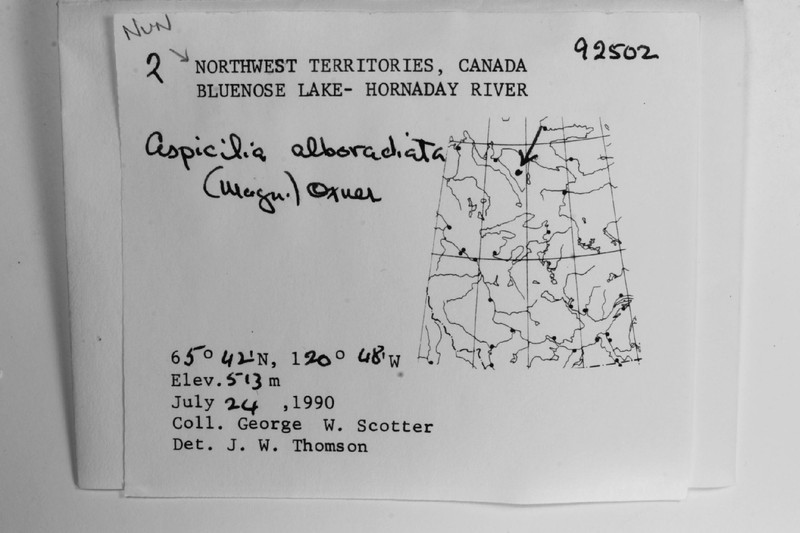 NUN
92502
2 NORTHWEST TERRITORIES, CANADA
BLUENOSE LAKE- HORNADAY RIVER
Aspicilia alboradiata
(Magn.) Oxner
65° 42'N, 120° 48'W
Elev. 513 m
July 24 ,1990
Coll. George W. Scotter
Det. J. W. Thomson